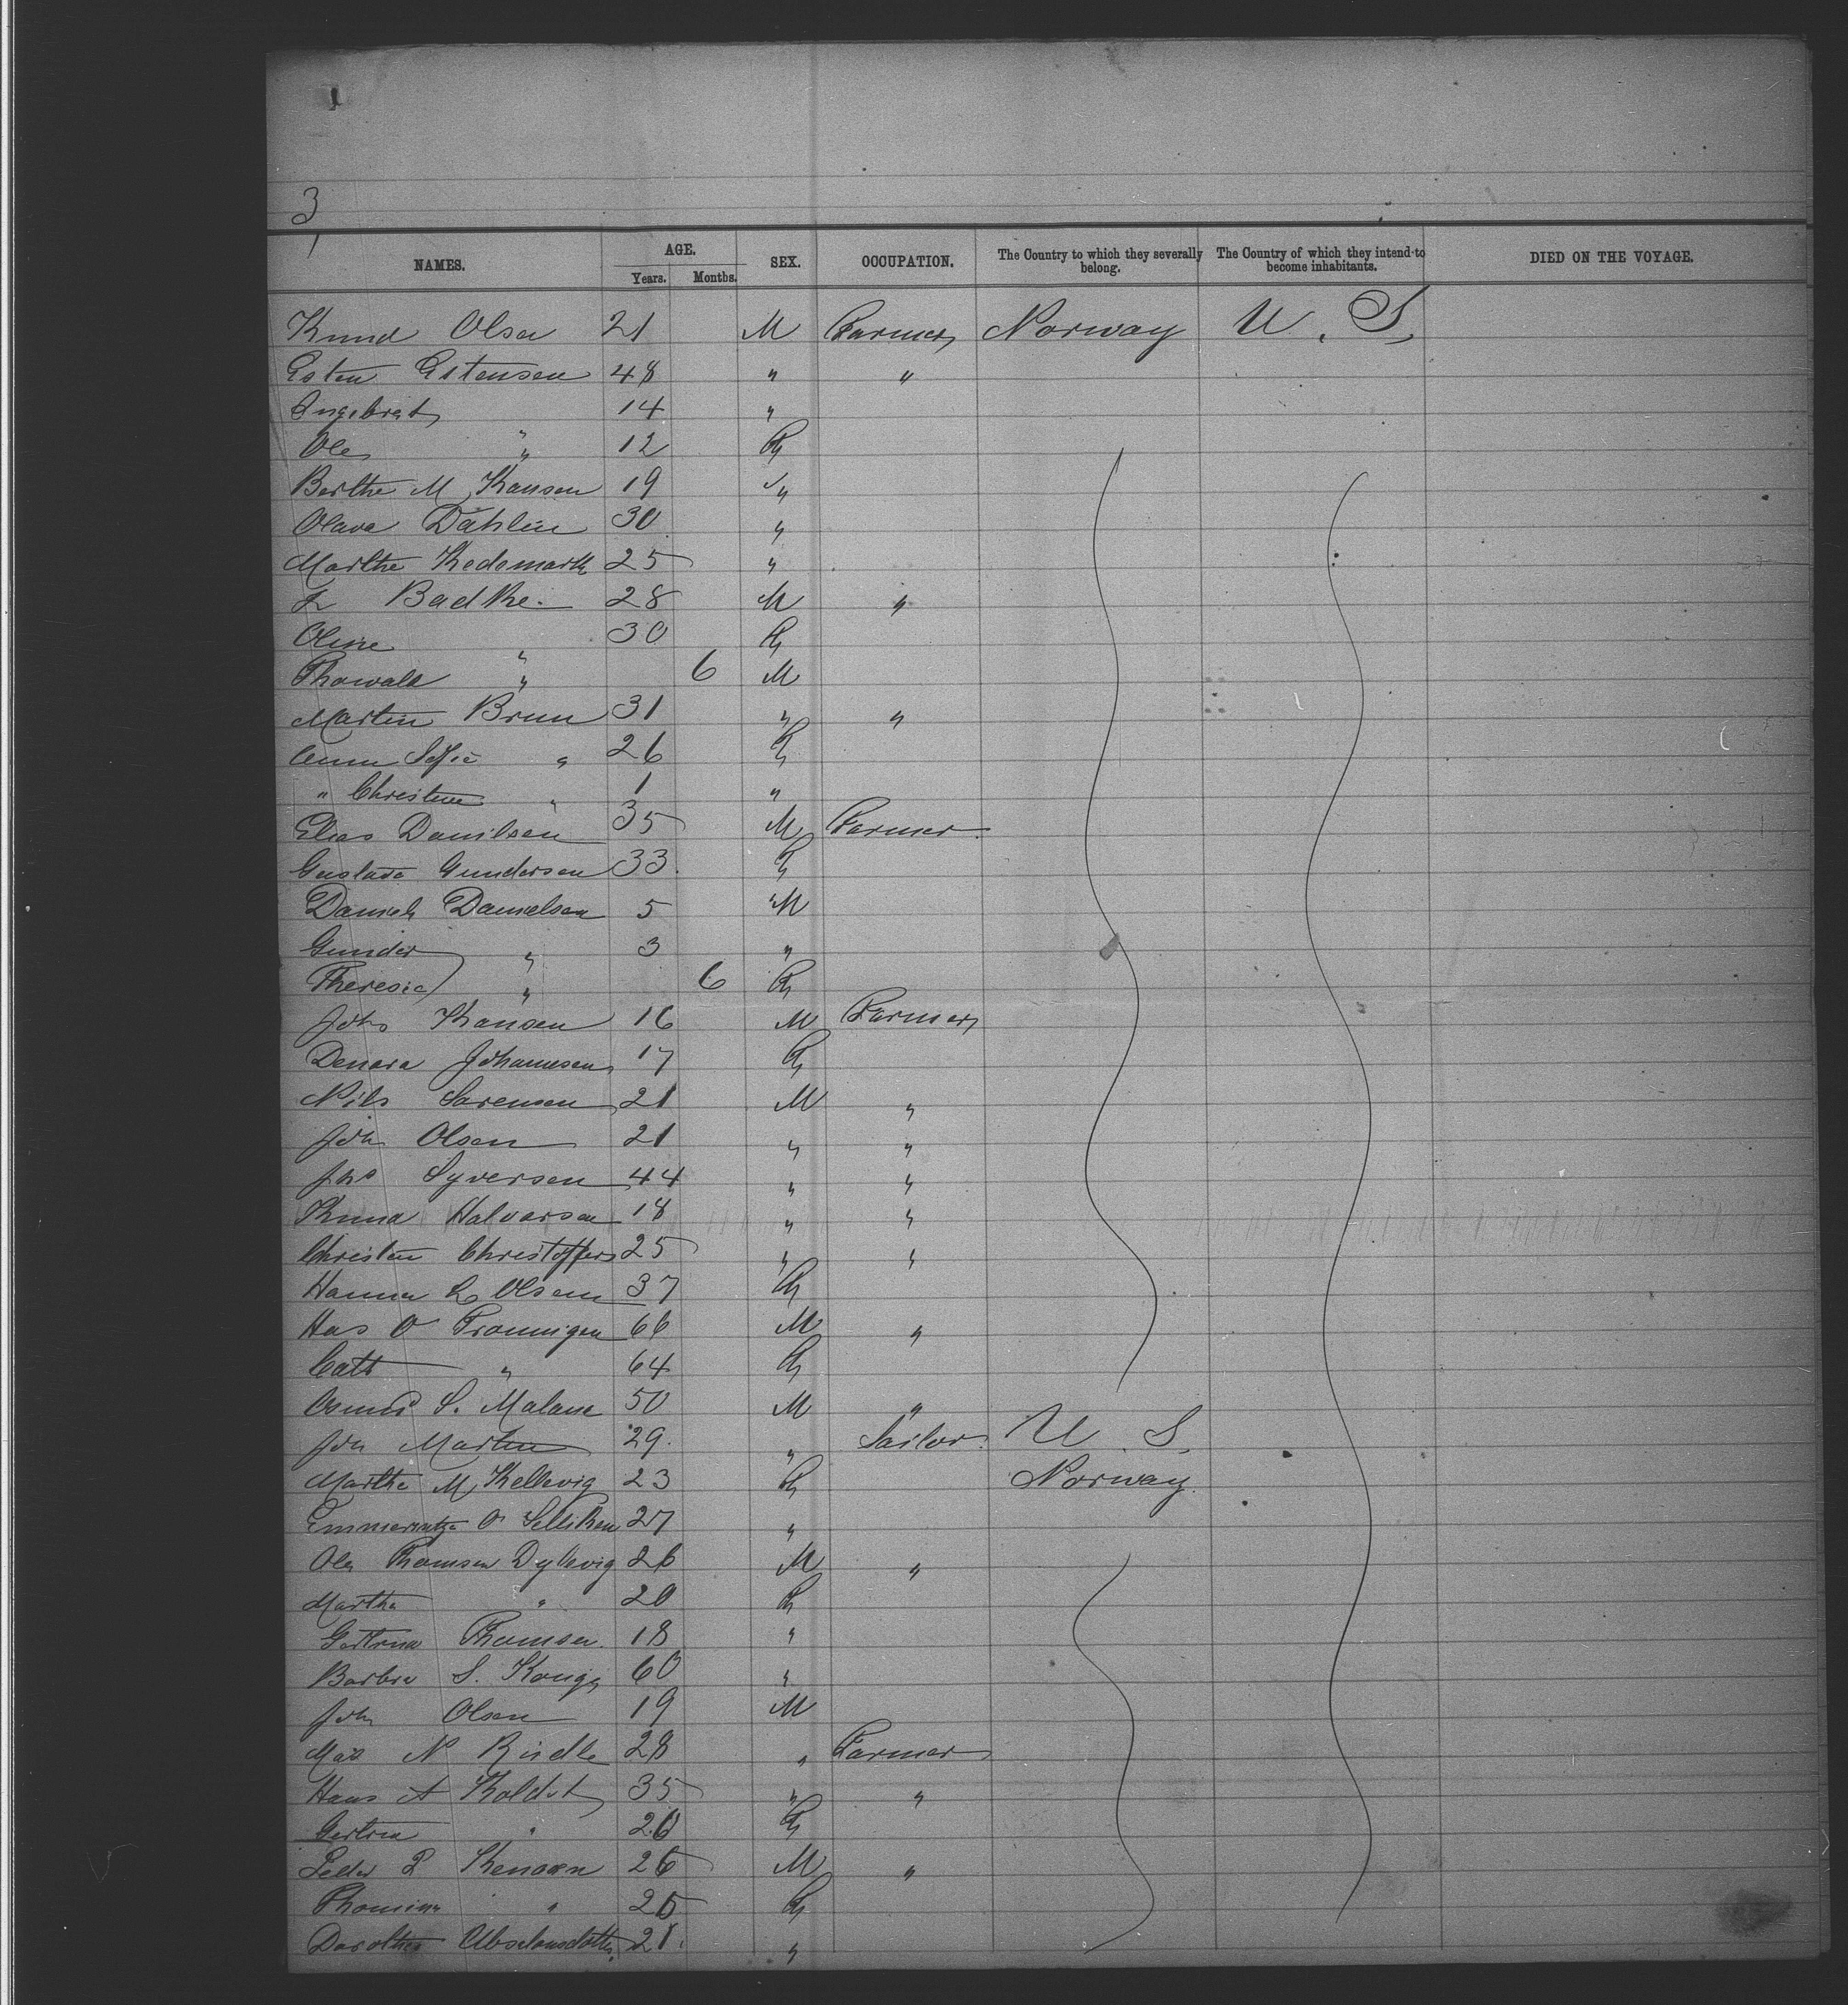 3
NAMES. AGE. Years. Months. SEX. OCCUPATION. The Country to which they severally belong. The Country of which they intend to become inhabitants. DIED ON THE VOYAGE.
Knud Olsen 21 M Farmer Norway U. S.
Esten Estensen 48 " "
Ingebret 14 "
Ole " 12 F
Berthe M Hansen 19 "
Olava Dahlin 30 "
Marthe Hedemark 25 "
Badke 28 M "
Oline " 30 F
Thorwald " 6 M
Martin Brun 31 " "
Anna Sofie " 26 F
" Christine " 1 "
Elias Danilsen 35 M Farmer
Gustava Gundersen 33 F
Daniel Danielsen 5 M
Gunder " 3 "
Theresia " 6 F
Johs Hansen 16 M Farmer
Johannesen 17 F
Nils Sorensen 21 M "
Joh Olsen 21 " "
Jns Syversen 44 " "
Knud Halvorsen 18 " "
Christen Christoffers 25 " "
Hanna L Olsen 37 F
Has O Pronnigen 66 M "
Cath " 64 F
S. Malane 50 M "
Joh Martin 29 " Sailor U. S.
Marthe M Kellevig 23 F Norway
O 27 "
Ole Thomsen Dyllevig 26 M "
Martha " 20 F
Gertrud Thomsen 18 "
Barbra S. 60 "
John Olsen 19 M
N 28 " Farmer
Hans A 35 " "
Gertrud " 26 F
Peder P 26 M "
Thomine " 25 F
Dorothea 21 "